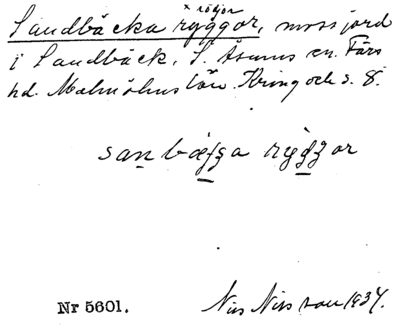 x rögor
Sandbäcka ryggor, mossjord
i Sandbäck, S. Åsums sn. Färs
hd. Malmöhus län. Kring och s. 8.
san bæɟɟa ryɟɟor
Nr 5601. Nils Nilsson 1934.